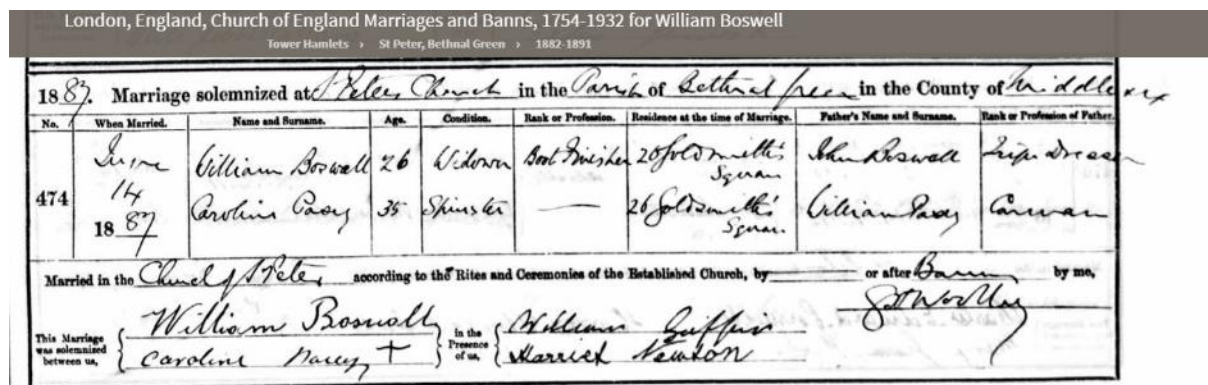 London, England, Church of England Marriages and Banns, 1754-1932 for William Boswell
Tower Hamlets › St Peter, Bethnal Green › 1882-1891
1887. Marriage solemnized at S Peters Church in the Parish of Bethnal Green in the County of Middlesex
No. When Married. Name and Surname. Age. Condition. Rank or Profession. Residence at the time of Marriage. Father's Name and Surname. Rank or Profession of Father.
474 June 14 1887
William Boswall 26 Widower Boot Finisher 20 Goldsmith's Square John Boswall Tripe Dresser
Caroline 35 Spinster — 26 Goldsmith's Square William Carman
Married in the Church of S Peter according to the Rites and Ceremonies of the Established Church, by or after Banns by me,
This Marriage was solemnized between us, William Boswall in the Presence of us, William Giffin
Caroline + Harriet Newton